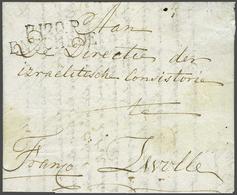 Aan
Directie der
israelitisch consistorie
te
Franco Zwolle